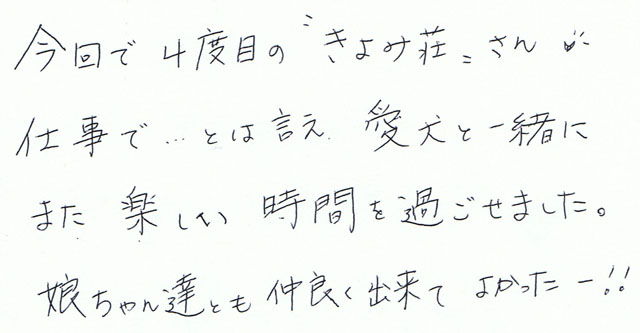 今回で 4度目の〝きよみ荘〟さん
仕事で…とは言え 愛犬と一緒に
また 楽しい 時間を過ごせました。
娘ちゃん達とも 仲良く出来て よかったー!!